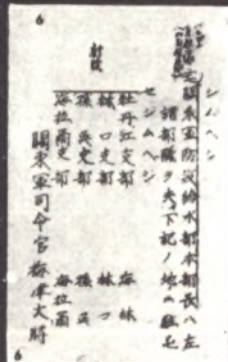 シムヘシ
關東軍防疫給水部本部長ハ左
諸部隊ヲ夫々下記ノ地ニ駐屯
セシムヘシ
牡丹江支部 海林
林口支部 林口
孫呉支部 孫呉
海拉爾支部 海拉爾
關東軍司令官 梅津大將
6
6